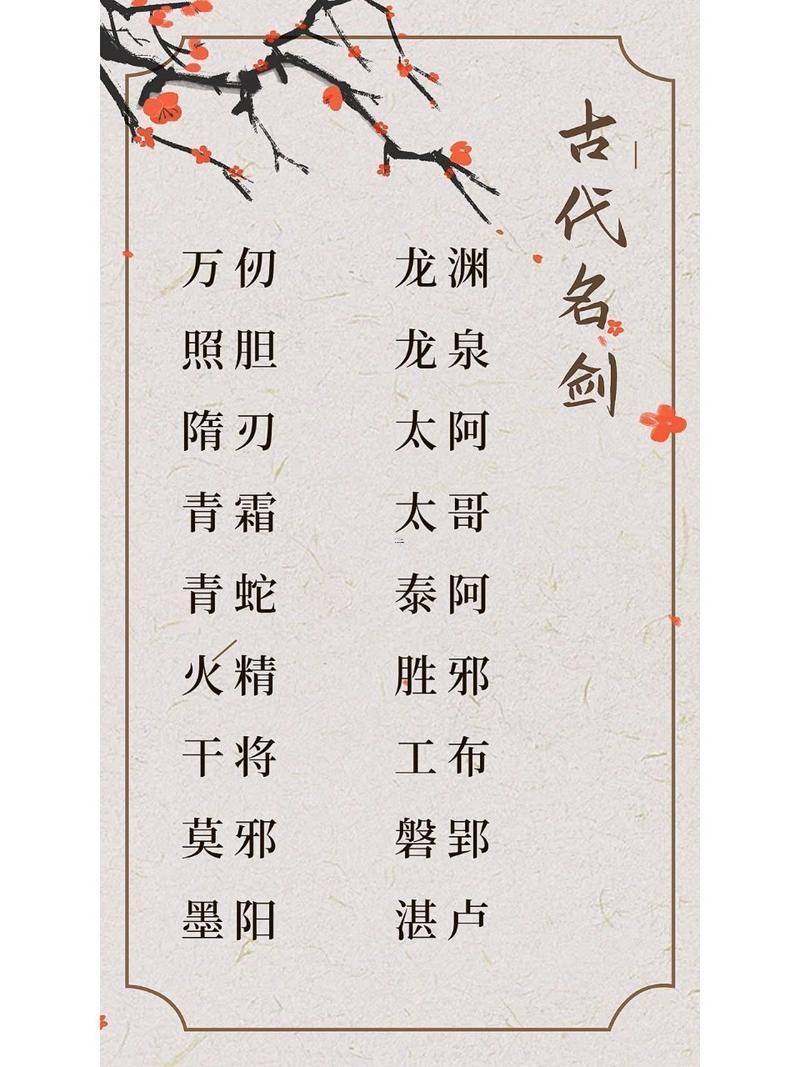 古代名剑
万仞 龙渊
照胆 龙泉
隋刃 太阿
青霜 太哥
青蛇 泰阿
火精 胜邪
干将 工布
莫邪 磐郢
墨阳 湛卢